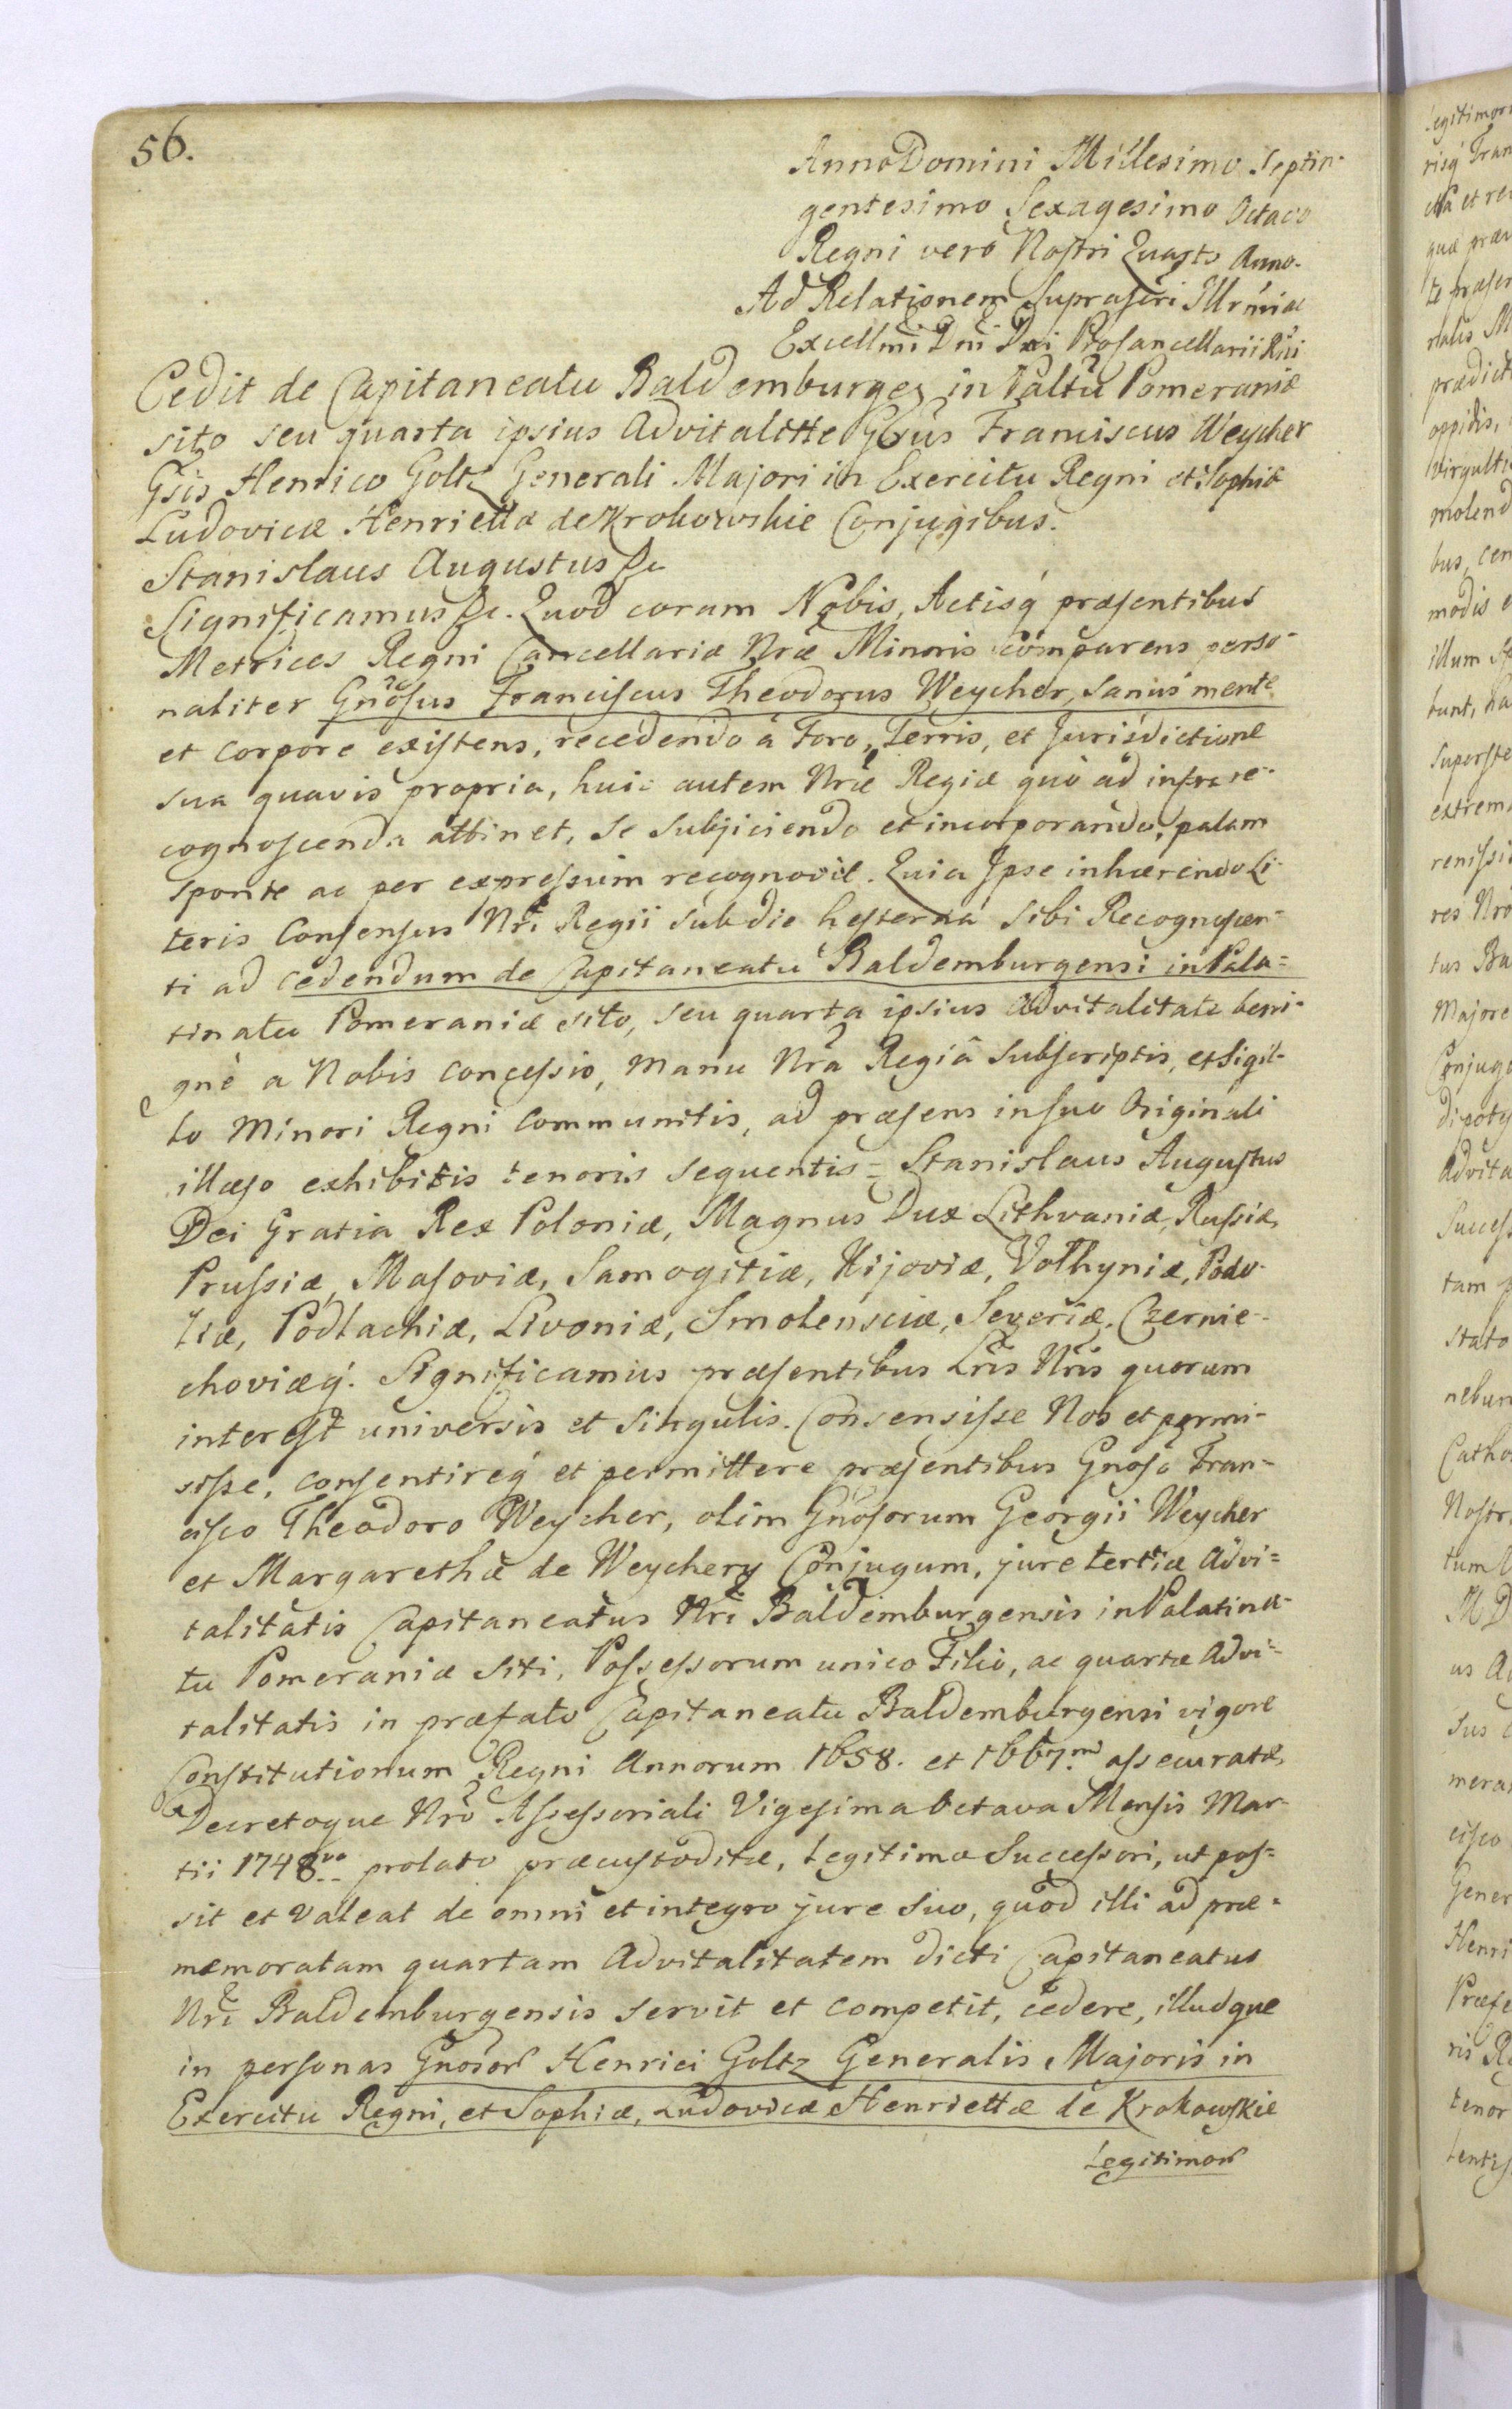 56.
Anno Domini Millesimo Septin-
gentesimo Sexagesimo Octavo
Regni vero Nostri Quarto Anno.
Ad Relationem Suprascri Illrmi ac
Excellmi Dni Dni Procancellarii Rni
Cedit de Capitaneatu Baldemburgeñ in Paltu Pomeraniæ
sito seu quarta ipsius Advitalitte Gsus Franciscus Weycher
Gsis Henrico Goltz Generali Majori in Exercitu Regni et Sophiæ
Ludovicæ Henriettæ de Krokowskie Conjugibus.
Stanislaus Augustus &c
Significamus &c. Quod coram Nobis, Actisq́ præsentibus
Metrices Regni Cancellariæ Nræ Minoris comparens perso-
naliter Gnosus Franciscus Theodorus Weycher, sanus mente
et corpore existens, recedendo à Foro, Terris, et Jurisdictione
sua quavis propria, huic autem Nræ Regiæ quò ad infra re-
cognoscenda attinet, se subjiciendo et incorporando, palam
sponte ac per expressum recognovit. Quia Ipse inhærendo Li-
teris Consensus Nri Regii sub die hesterna sibi Recognoscen-
ti ad cedendum de Capitaneatu Baldemburgensi in Pala=
tinatu Pomeraniæ sito, seu quarta ipsius advitalitate beni-
gnè a Nobis concessis, manu Nra Regiâ subscriptis, et Sigil-
lo Minori Regni communitis, ad præsens in suo Originali
illæso exhibitis tenoris sequentis = Stanislaus Augustus
Dei Gratia Rex Poloniæ, Magnus Dux Lithvaniæ, Russiæ,
Prussiæ, Masoviæ, Samogitiæ, Kijoviæ, Volhyniæ, Podo-
liæ, Podlachiæ, Livoniæ, Smolensciæ, Severiæ, Czernie-
choviæq́. Significamus præsentibus Lris Nris quorum
interest universis et singulis. Consensisse Nos et permi-
sisse, consentireq́ et permittere præsentibus Gnoso Fran-
cisco Theodoro Weycher, olim Gnosorum Georgii Weycher
et Margarethæ de Weychery Conjugum, jure tertiæ Advi=
talitatis Capitaneatus Nri Baldemburgensis in Palatina-
tu Pomeraniæ siti, Possessorum unico Filio, ac quartæ Advi-
talitatis in præfato Capitaneatu Baldemburgensi vigore
Constitutionum Regni Annorum 1658. et 1667.mi assecuratæ,
Decretoque Nro Assessoriali Vigesima octava Mensis Mar-
tii 1748vo prolato præcustoditæ, Legitimo Successori, ut pos=
sit et valeat de omni et integro jure suo, quod illi ad præ=
memoratam quartam Advitalitatem dicti Capitaneatus
Nri Baldemburgensis servit et competit, cedere, illudque
in personas Gnosor Henrici Goltz Generalis Majoris in
Exercitu Regni, et Sophiæ, Ludovicæ Henriettæ de Krokowskie
Legitimor